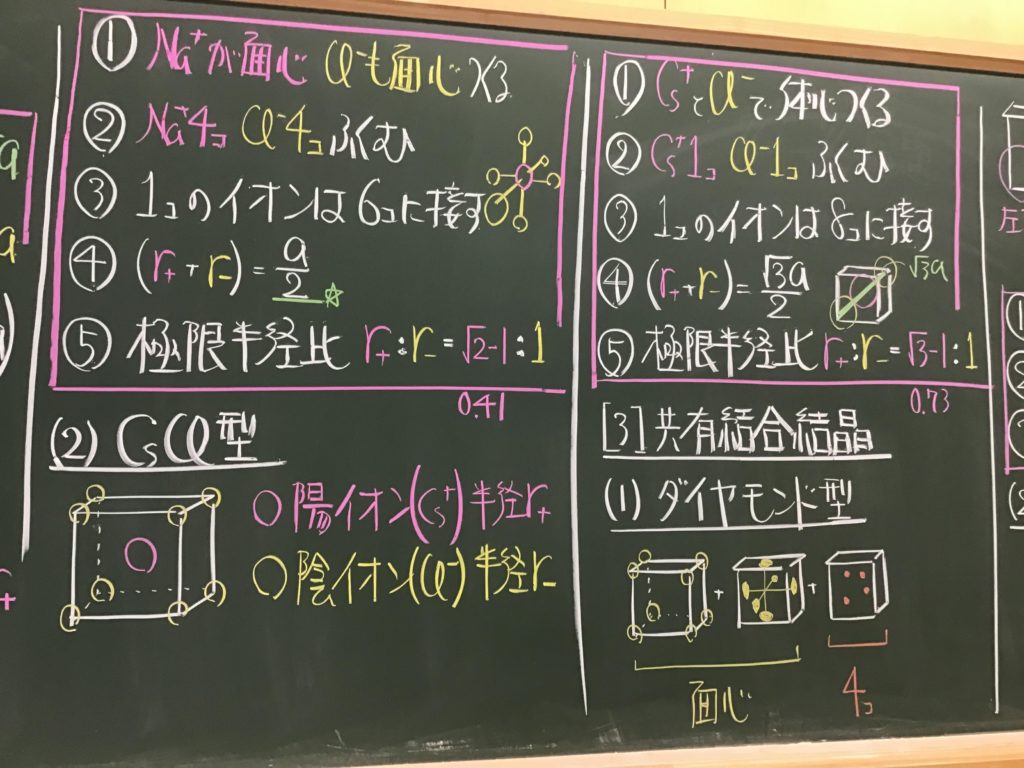 ① Na⁺が面心 Cl⁻も面心つくる
② Na⁺4コ Cl⁻4コ ふくむ
③ 1コのイオンは6コに接す
④ (r₊+r₋) = a/2 ☆
⑤ 極限半径比 r₊:r₋=√2-1:1
0.41
(2) CsCl型
○陽イオン(Cs⁺)半径r₊
○陰イオン(Cl⁻)半径r₋
① Cs⁺とCl⁻で体心つくる
② Cs⁺1コ Cl⁻1コ ふくむ
③ 1コのイオンは8コに接す
④ (r₊+r₋) = √3a/2
√3a
⑤ 極限半径比 r₊:r₋=√3-1:1
0.73
[3] 共有結合結晶
(1) ダイヤモンド型
+ +
面心 4コ